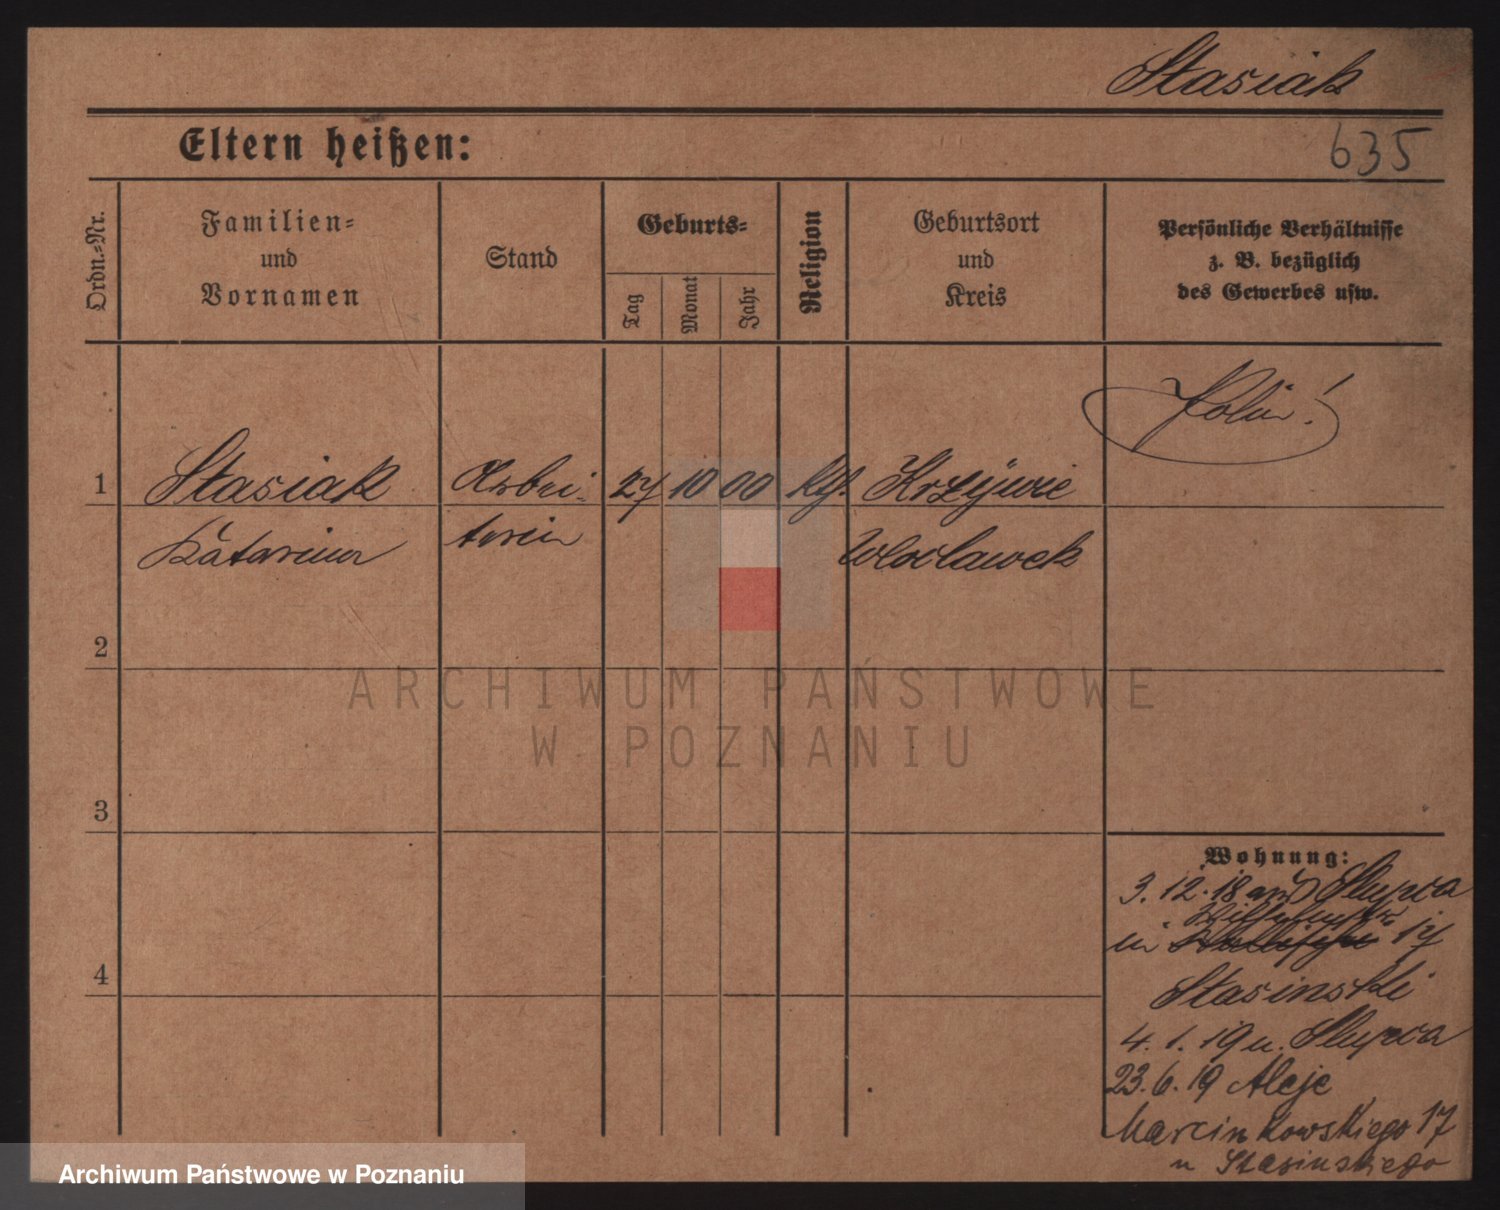 Stasiak
Eltern heißen:
635
Ordn.=Nr.
Familien=
und
Vornamen
Stand
Geburts=
Tag
Monat
Jahr
Religion
Geburtsort
und
Kreis
Persönliche Verhältnisse
z. B. bezüglich
des Gewerbes usw.
Polin!
1
Stasiak Arbei= 27 10 00 kth. Krzywie
Katarina terin Wloclawek
2
3
4
Wohnung:
3. 12. 18 aus Slupca
in 17
Stasinski
4. 1. 19 n. Slupca
23. 6. 19 Aleje
Marcinkowskiego 17
u Stasinskiego
ARCHIWUM PAŃSTWOWE
W POZNANIU
Archiwum Państwowe w Poznaniu